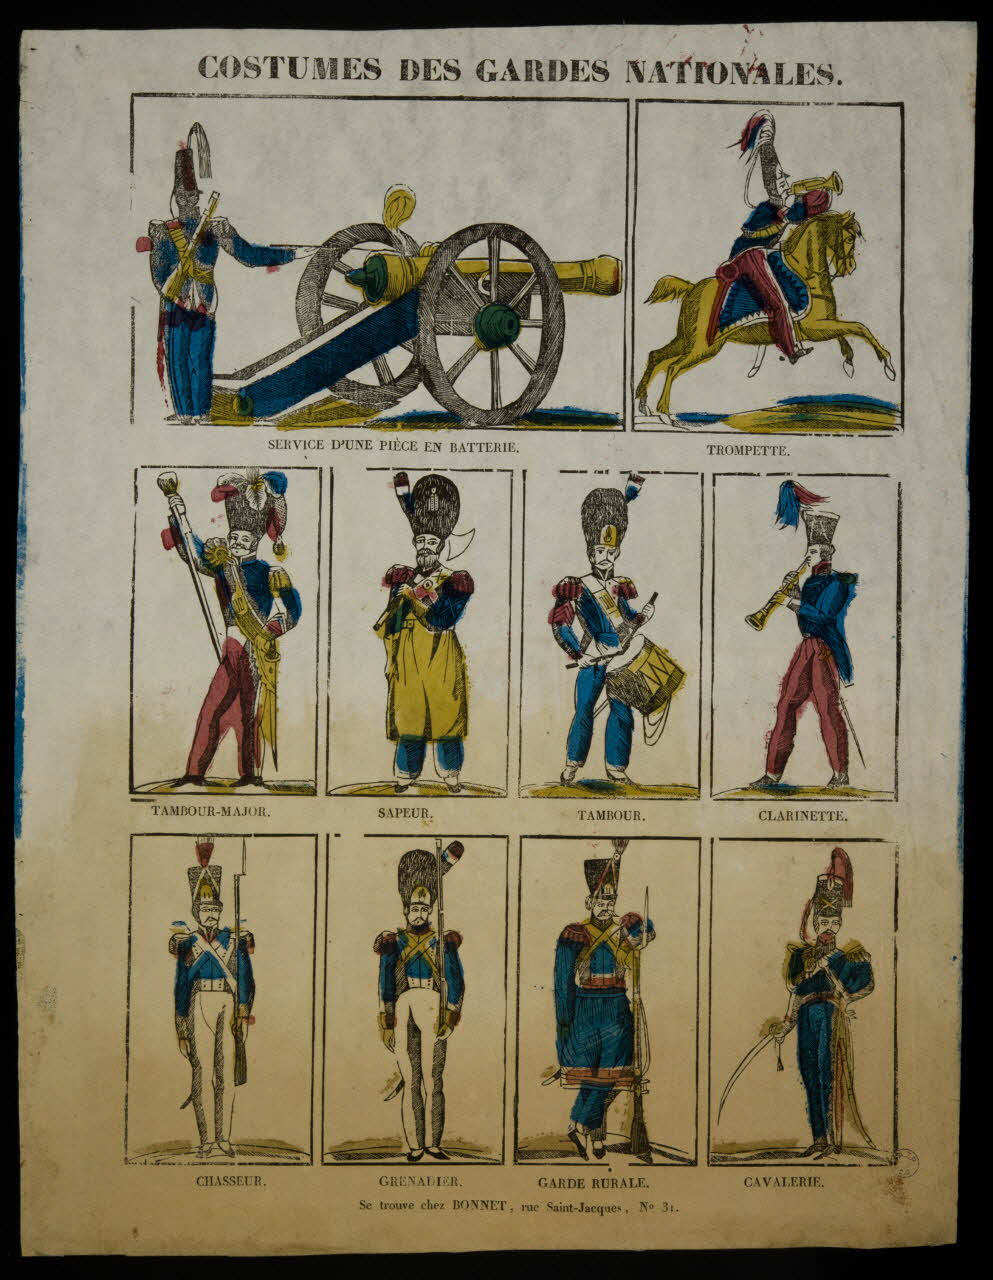 COSTUMES DES GARDES NATIONALES.
SERVICE D'UNE PIÈCE EN BATTERIE.
TROMPETTE.
TAMBOUR-MAJOR.
SAPEUR.
TAMBOUR.
CLARINETTE.
CHASSEUR.
GRENADIER.
GARDE RURALE.
CAVALERIE.
Se trouve chez BONNET, rue Saint-Jacques, No 31.